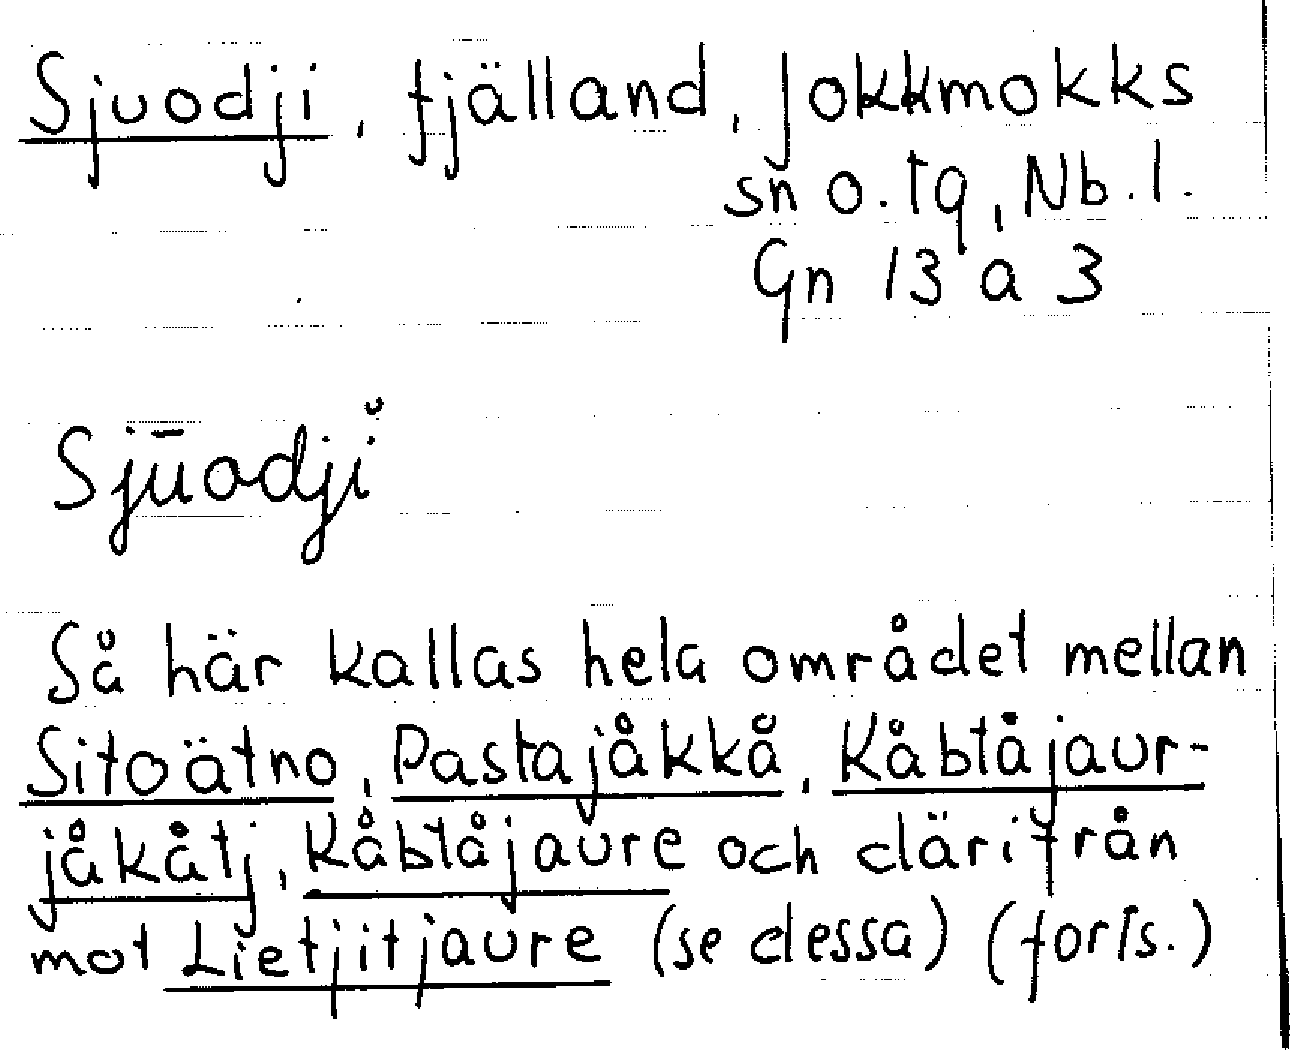 Sjuodji, fjälland, Jokkmokks
sn o. tg, Nb. l.
Gn 13 a 3
Sjūodjĭ
Så här kallas hela området mellan
Sitoätno, Pastajåkkå, Kåbtåjaur-
jåkåtj, Kåbtåjaure och därifrån
mot Lietjitjaure (se dessa) (forts.)